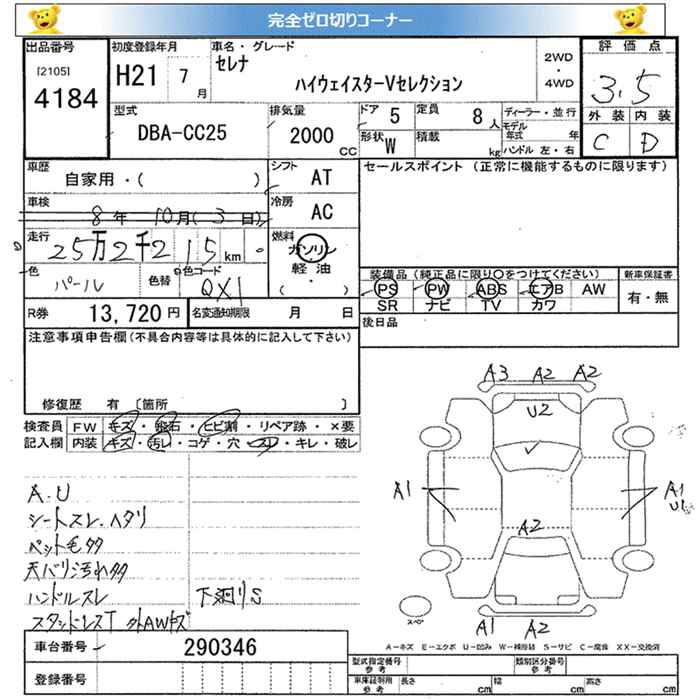 完全ゼロ切りコーナー
出品番号
[2105]
4184
初度登録年月
H21 7 月
車名・グレード
セレナ
ハイウェイスターVセレクション
2WD
・
4WD
評価点
3.5
外装 内装
C D
型式
DBA-CC25
排気量
2000 CC
ドア 5
定員 8 人
形状 W
積載 kg
ディーラー・並行
モデル年式 年
ハンドル 左・右
車歴
自家用・( )
シフト AT
車検
8年 10月(3日)
冷房 AC
走行
25万2千215km
燃料
ガソリン
軽油
(・)
色
パール
色替
色コード
QX1
R券 13,720円
名変通知期限 月 日
セールスポイント (正常に機能するものに限ります)
装備品(純正品に限り○をつけてください)
PS PW ABS エアB AW
SR ナビ TV カワ
新車保証書
有・無
後日品
注意事項申告欄(不具合内容等は具体的に記入して下さい)
修復歴 有 〔箇所 〕
検査員記入欄
FW キズ・飛石・ヒビ割・リペア跡・×要
内装 キズ・汚レ・コゲ・穴・スレ・キレ・破レ
A.U
シートスレ.ヘタリ
ペット毛多
天バリ汚れ多
ハンドルスレ 下廻りS
スタッドレスT 外AWキズ
A3 A2 A2
U2
A1 A1
U1
A2
スペア
A1 A2
A-キズ E-エクボ U-凹み W-補修跡 S-サビ C-腐食 XX-交換済
車台番号 290346
登録番号
型式指定番号
参考
類別区分番号
参考
車庫証明用
参考
長さ cm 幅 cm 高さ cm